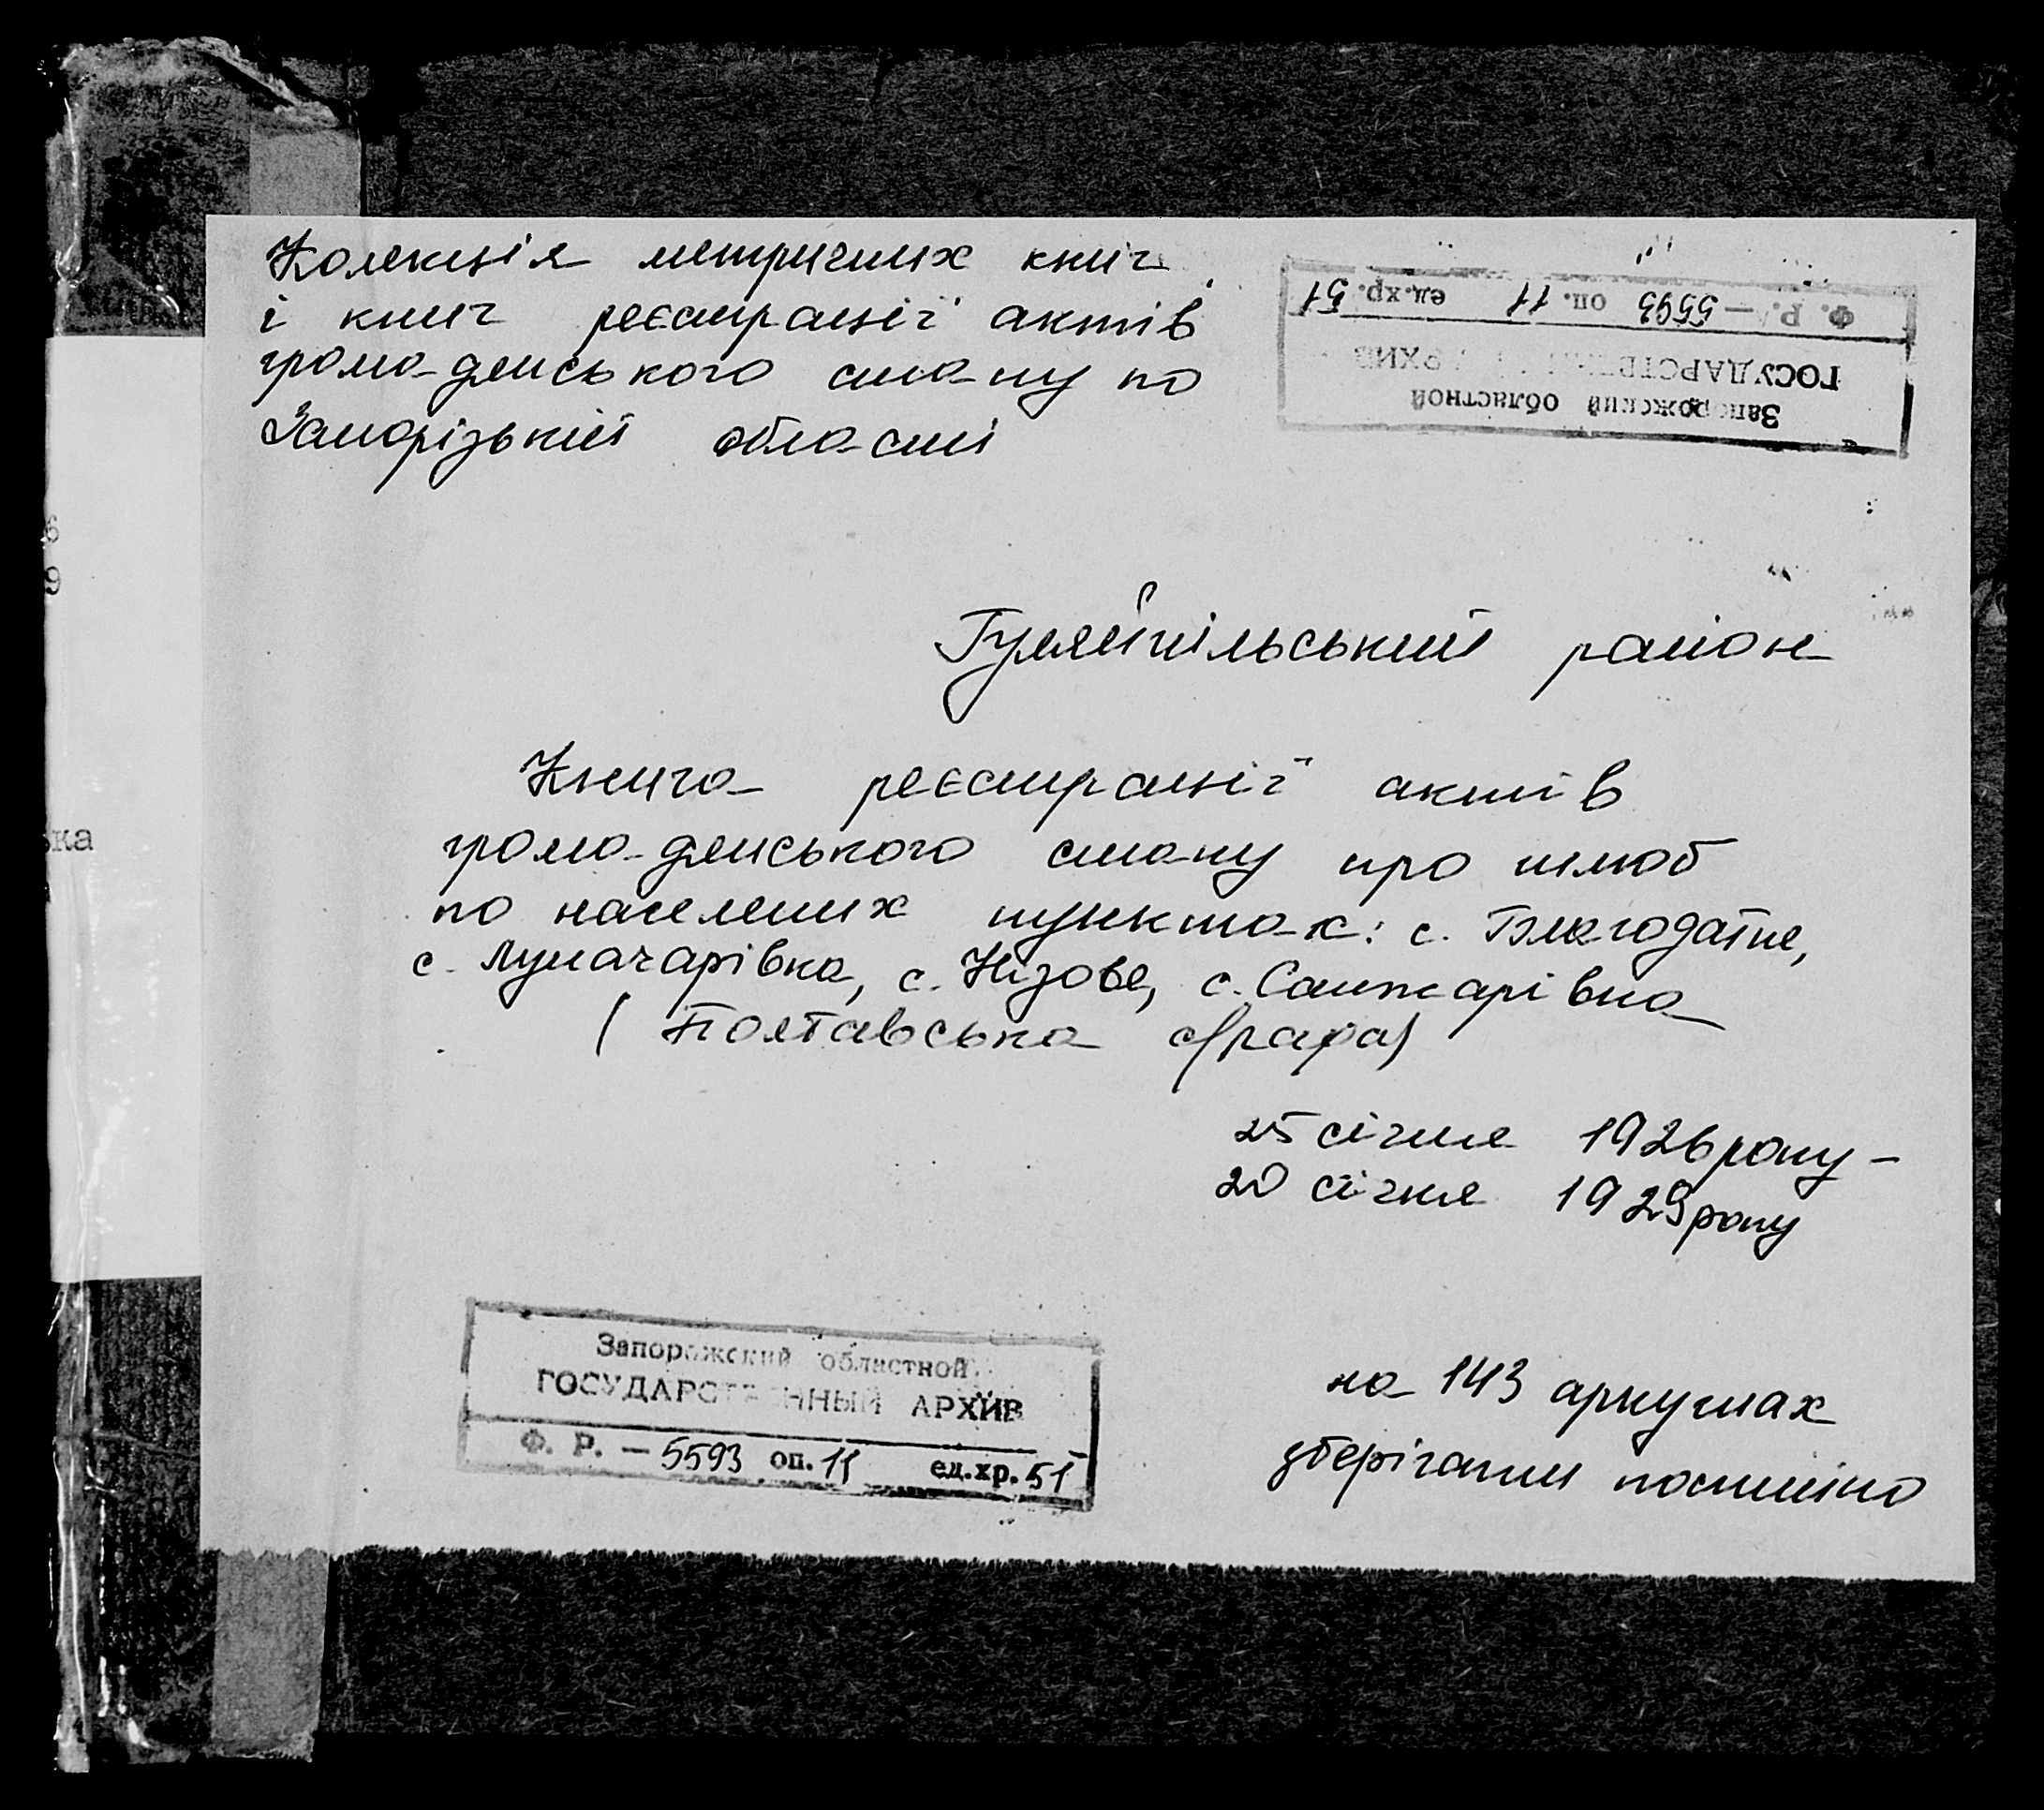 Колекція метричних книг
і книг реєстрації актів
громадянського стану по
Запорізькій області
Запорожский областной
ГОСУДАРСТВЕННЫЙ АРХИВ
Ф. Р. — 5593 оп. 11 ед.хр. 51
Гуляйпільський район
Книга реєстрації актів
громадянського стану про шлюб
по населених пунктах: с. Благодатне,
с. Луначарівка, с. Нізове, с. Санжарівка
(Полтавська с/рада)
25 січня 1926 року –
20 січня 1929 року
Запорожский областной
ГОСУДАРСТВЕННЫЙ АРХИВ
Ф. Р. — 5593 оп. 11 ед.хр. 51
на 143 аркушах
зберігати постійно
6
9
ка